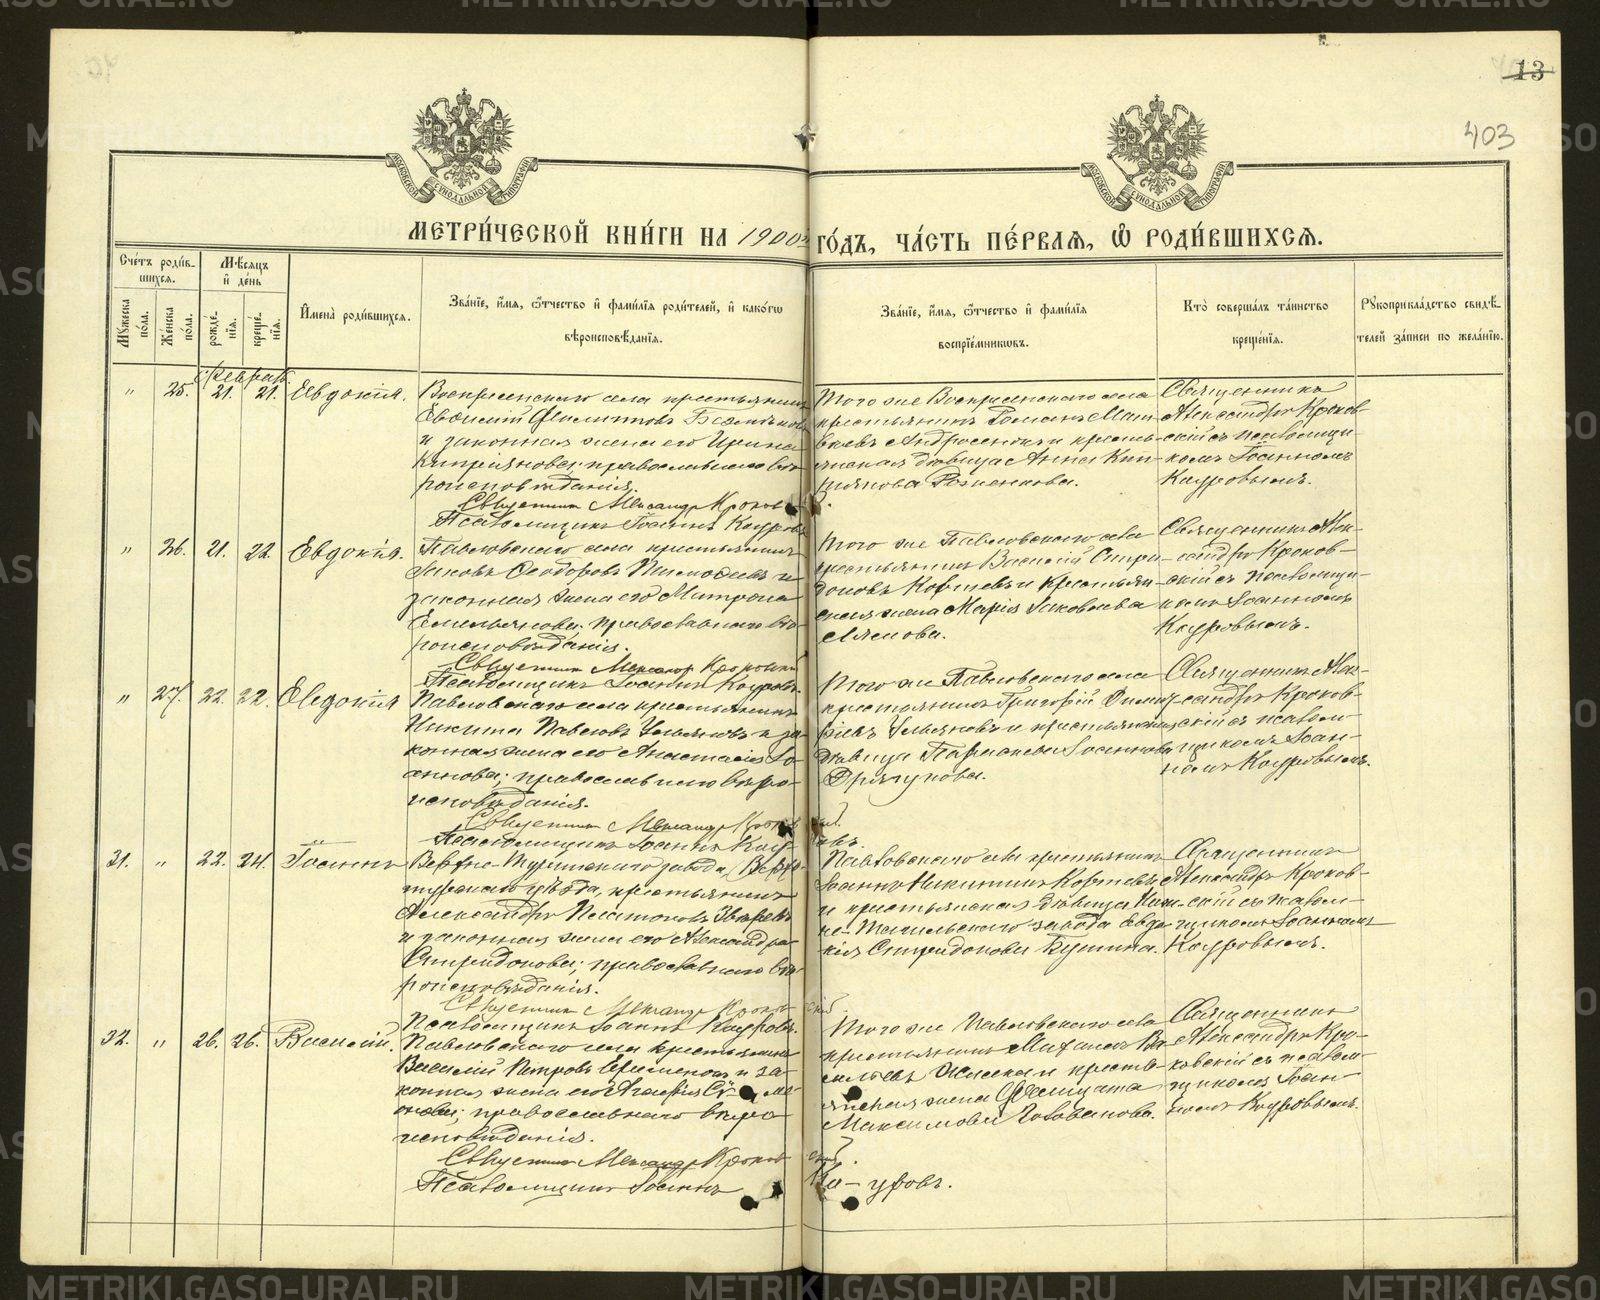 13
403
МОСКОВСКОЙ СѴНОДАЛЬНОЙ ТИПОГРАФІИ
МОСКОВСКОЙ СѴНОДАЛЬНОЙ ТИПОГРАФІИ
МЕТРИ́ЧЕСКОЙ КНИ́ГИ НА 1900й ГО́ДЪ, ЧА́СТЬ ПЕ́РВАЯ, Ѡ҆ РОДИ́ВШИХСЯ.
Сче́тъ роди́в-
шихся.
Мꙋ́жеска по́ла.
Же́нска по́ла.
Мѣ́сяцъ
и҆ де́нь
рожде́нїя.
креще́нїя.
И҆мена̀ роди́вшихся.
Зва́нїе, и҆́мя, ѻ҆́тчество и҆ фами́лїя роди́телей, и҆ како́гѡ
вѣроисповѣ́данїя.
Зва́нїе, и҆́мя, ѻ҆́тчество и҆ фами́лїя
воспрїе́мникѡвъ.
Кто̀ соверша́лъ та́инство
креще́нїя.
Рꙋкоприкла́дство свидѣ́-
телей за́писи по жела́нїю.
Феврал.
" 25. 21. 21. Евдокія.
Воскресенскаго села крестьянинъ
и законная жена его Ирина
Кипріянова; православнаго вѣ-
роисповѣданія.
Священникъ Александр Кроковскій.
Псаломщикъ Іоаннъ Кауровъ
Того же Воскресенскаго села
крестьянинъ Романъ Мат-
вѣевъ Андросенко и кресть-
янская дѣвица Анна Кип-
ріянова
Священникъ
Александръ Кроков-
скій съ псаломщи-
комъ Іоанномъ
Кауровымъ.
" 26. 21. 22. Евдокія.
Павловскаго села крестьянинъ
Іаковъ Ѳеодоровъ Тимоѳеевъ и
законная жена его Матрона
Емельянова; православнаго вѣ-
роисповѣданія.
Священник Александр Кроковскій
Псаломщикъ Іоаннъ Кауровъ
Того же Павловскаго села
крестьянинъ Василій Спири-
доновъ Коршевъ и крестьян-
ская жена Марія Іаковлева
Священникъ Алек-
сандръ Кроков-
скій съ псаломщи-
комъ Іоанномъ
Кауровымъ.
" 27. 22. 22. Евдокія
Павловскаго села крестьянинъ
Никита Павловъ Ульяновъ и за-
конная жена его Анастасія Іо-
аннова; православнаго вѣро-
исповѣданія.
Священник Александр Кроковскій.
Псаломщикъ Іоаннъ Кауровъ.
Того же Павловскаго села
крестьянинъ Григорій Димит-
ріевъ Ульяновъ и крестьянская
дѣвица Параскева Іоаннова
Священникъ Алек-
сандръ Кроков-
скій съ псалом-
щикомъ Іоан-
номъ Кауровымъ.
31. " 22. 24. Іоаннъ
Верхне-Туринскаго завода, Верхо-
турскаго уѣзда, крестьянинъ
Александръ Платоновъ Звѣревъ
и законная жена его Александра
Спиридонова; православнаго вѣ-
роисповѣданія.
Священник Александр Кроковскій
Псаломщикъ Іоаннъ Кауровъ.
Павловскаго села крестьянинъ
Іоаннъ Никитинъ Коршевъ
и крестьянская дѣвица Ниж-
не-Тагильскаго завода Евдо-
кія Спиридонова
Священникъ
Александръ Кроков-
скій съ псалом-
щикомъ Іоанномъ
Кауровымъ.
32. " 26. 26. Василій.
Павловскаго села крестьянинъ
Василій Петровъ и за-
конная жена его Агафія
православнаго вѣро
исповѣданія.
Священник Александр Кроковскій.
Псаломщикъ Іоаннъ Ка-уровъ.
Того же Павловскаго села
крестьянинъ Михаилъ Ва-
сильевъ и кресть-
янская жена
Максимова Голованова.
Священникъ
Александръ Кро-
ковскій съ псалом-
щикомъ Іоан-
номъ Кауровымъ.
METRIKI.GASO-URAL.RU
METRIKI.GASO-URAL.RU
METRIKI.GASO-URAL.RU